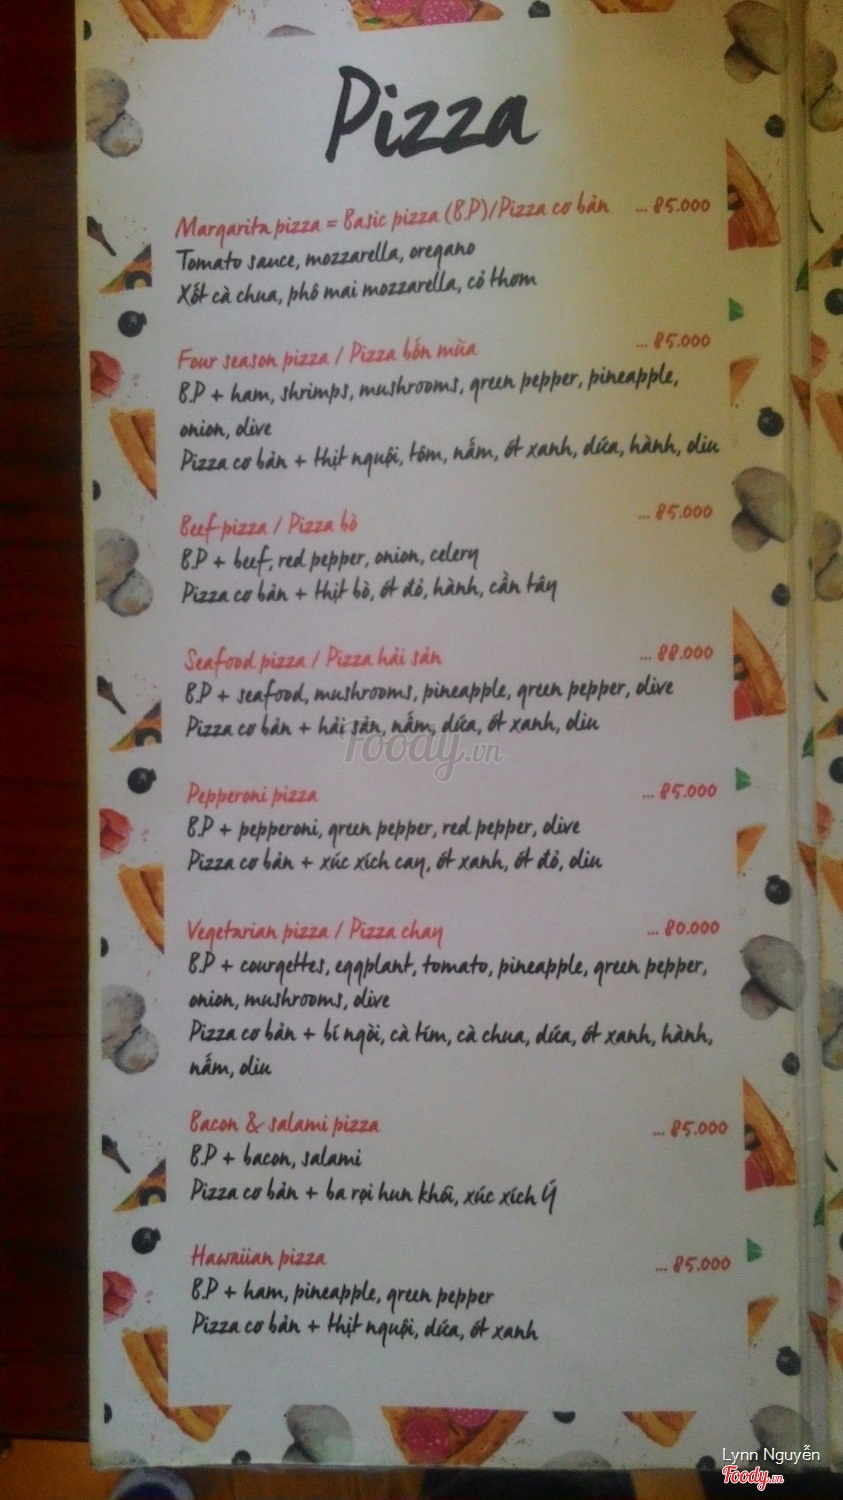 Pizza
Margarita pizza = Basic pizza (B.P)/Pizza cơ bản ... 85.000
Tomato sauce, mozzarella, oregano
Xốt cà chua, phô mai mozzarella, cỏ thơm
Four season pizza / Pizza bốn mùa ... 85.000
B.P + ham, shrimps, mushrooms, green pepper, pineapple,
onion, olive
Pizza cơ bản + thịt nguội, tôm, nấm, ớt xanh, dứa, hành, oliu
Beef pizza / Pizza bò ... 85.000
B.P + beef, red pepper, onion, celery
Pizza cơ bản + thịt bò, ớt đỏ, hành, cần tây
Seafood pizza / Pizza hải sản ... 88.000
B.P + seafood, mushrooms, pineapple, green pepper, olive
Pizza cơ bản + hải sản, nấm, dứa, ớt xanh, oliu
Foody.vn
Pepperoni pizza ... 85.000
B.P + pepperoni, green pepper, red pepper, olive
Pizza cơ bản + xúc xích cay, ớt xanh, ớt đỏ, oliu
Vegetarian pizza / Pizza chay ... 80.000
B.P + courgettes, eggplant, tomato, pineapple, green pepper,
onion, mushrooms, olive
Pizza cơ bản + bí ngòi, cà tím, cà chua, dứa, ớt xanh, hành,
nấm, oliu
Bacon & salami pizza ... 85.000
B.P + bacon, salami
Pizza cơ bản + ba rọi hun khói, xúc xích Ý
Hawaiian pizza ... 85.000
B.P + ham, pineapple, green pepper
Pizza cơ bản + thịt nguội, dứa, ớt xanh
Lynn Nguyễn
Foody.vn